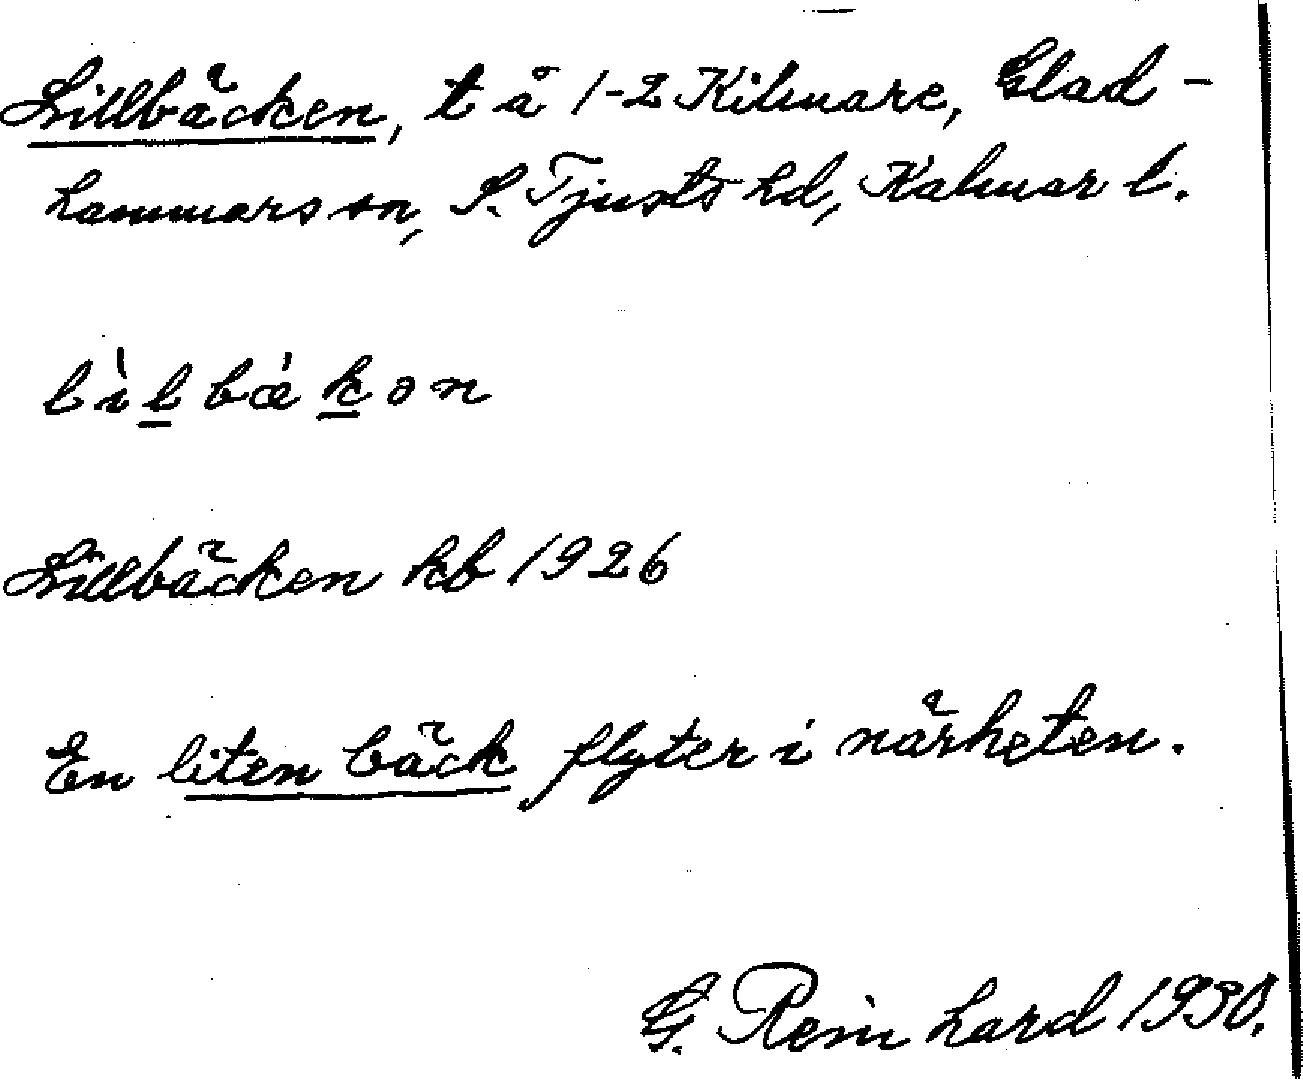 Lillbäcken, t å 1-2 Kilmare, Glad-
hammars sn, S. Tjusts hd, Kalmar l.
lìlbǽkən
Lillbäcken kb 1926
En liten bäck flyter i närheten.
G. Reinhard 1930.